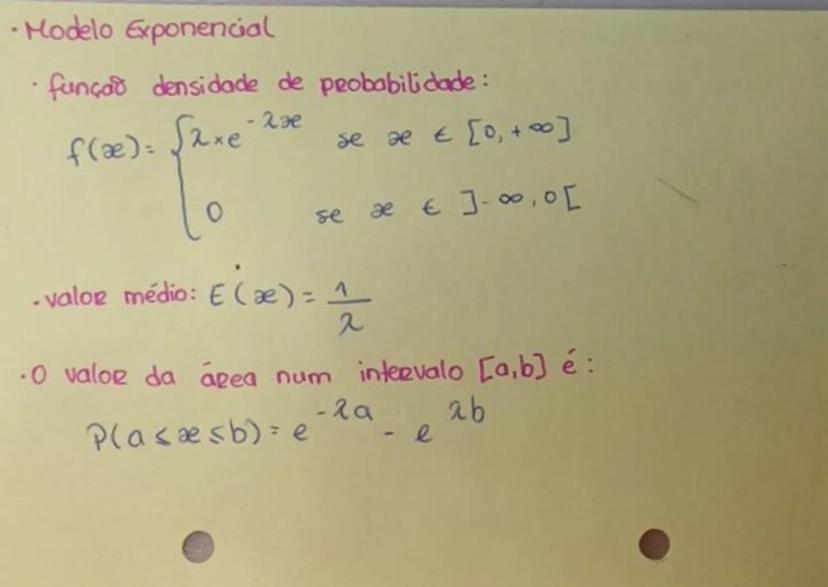 · Modelo Exponencial
· função densidade de probabilidade:
f(x) = { λ × e^{-λx} se x ∈ [0, +∞]
0 se x ∈ ]-∞, 0[
· valor médio: E(x) = 1/λ
· O valor da área num intervalo [a,b] é:
P(a ≤ x ≤ b) = e^{-λa} - e^{λb}